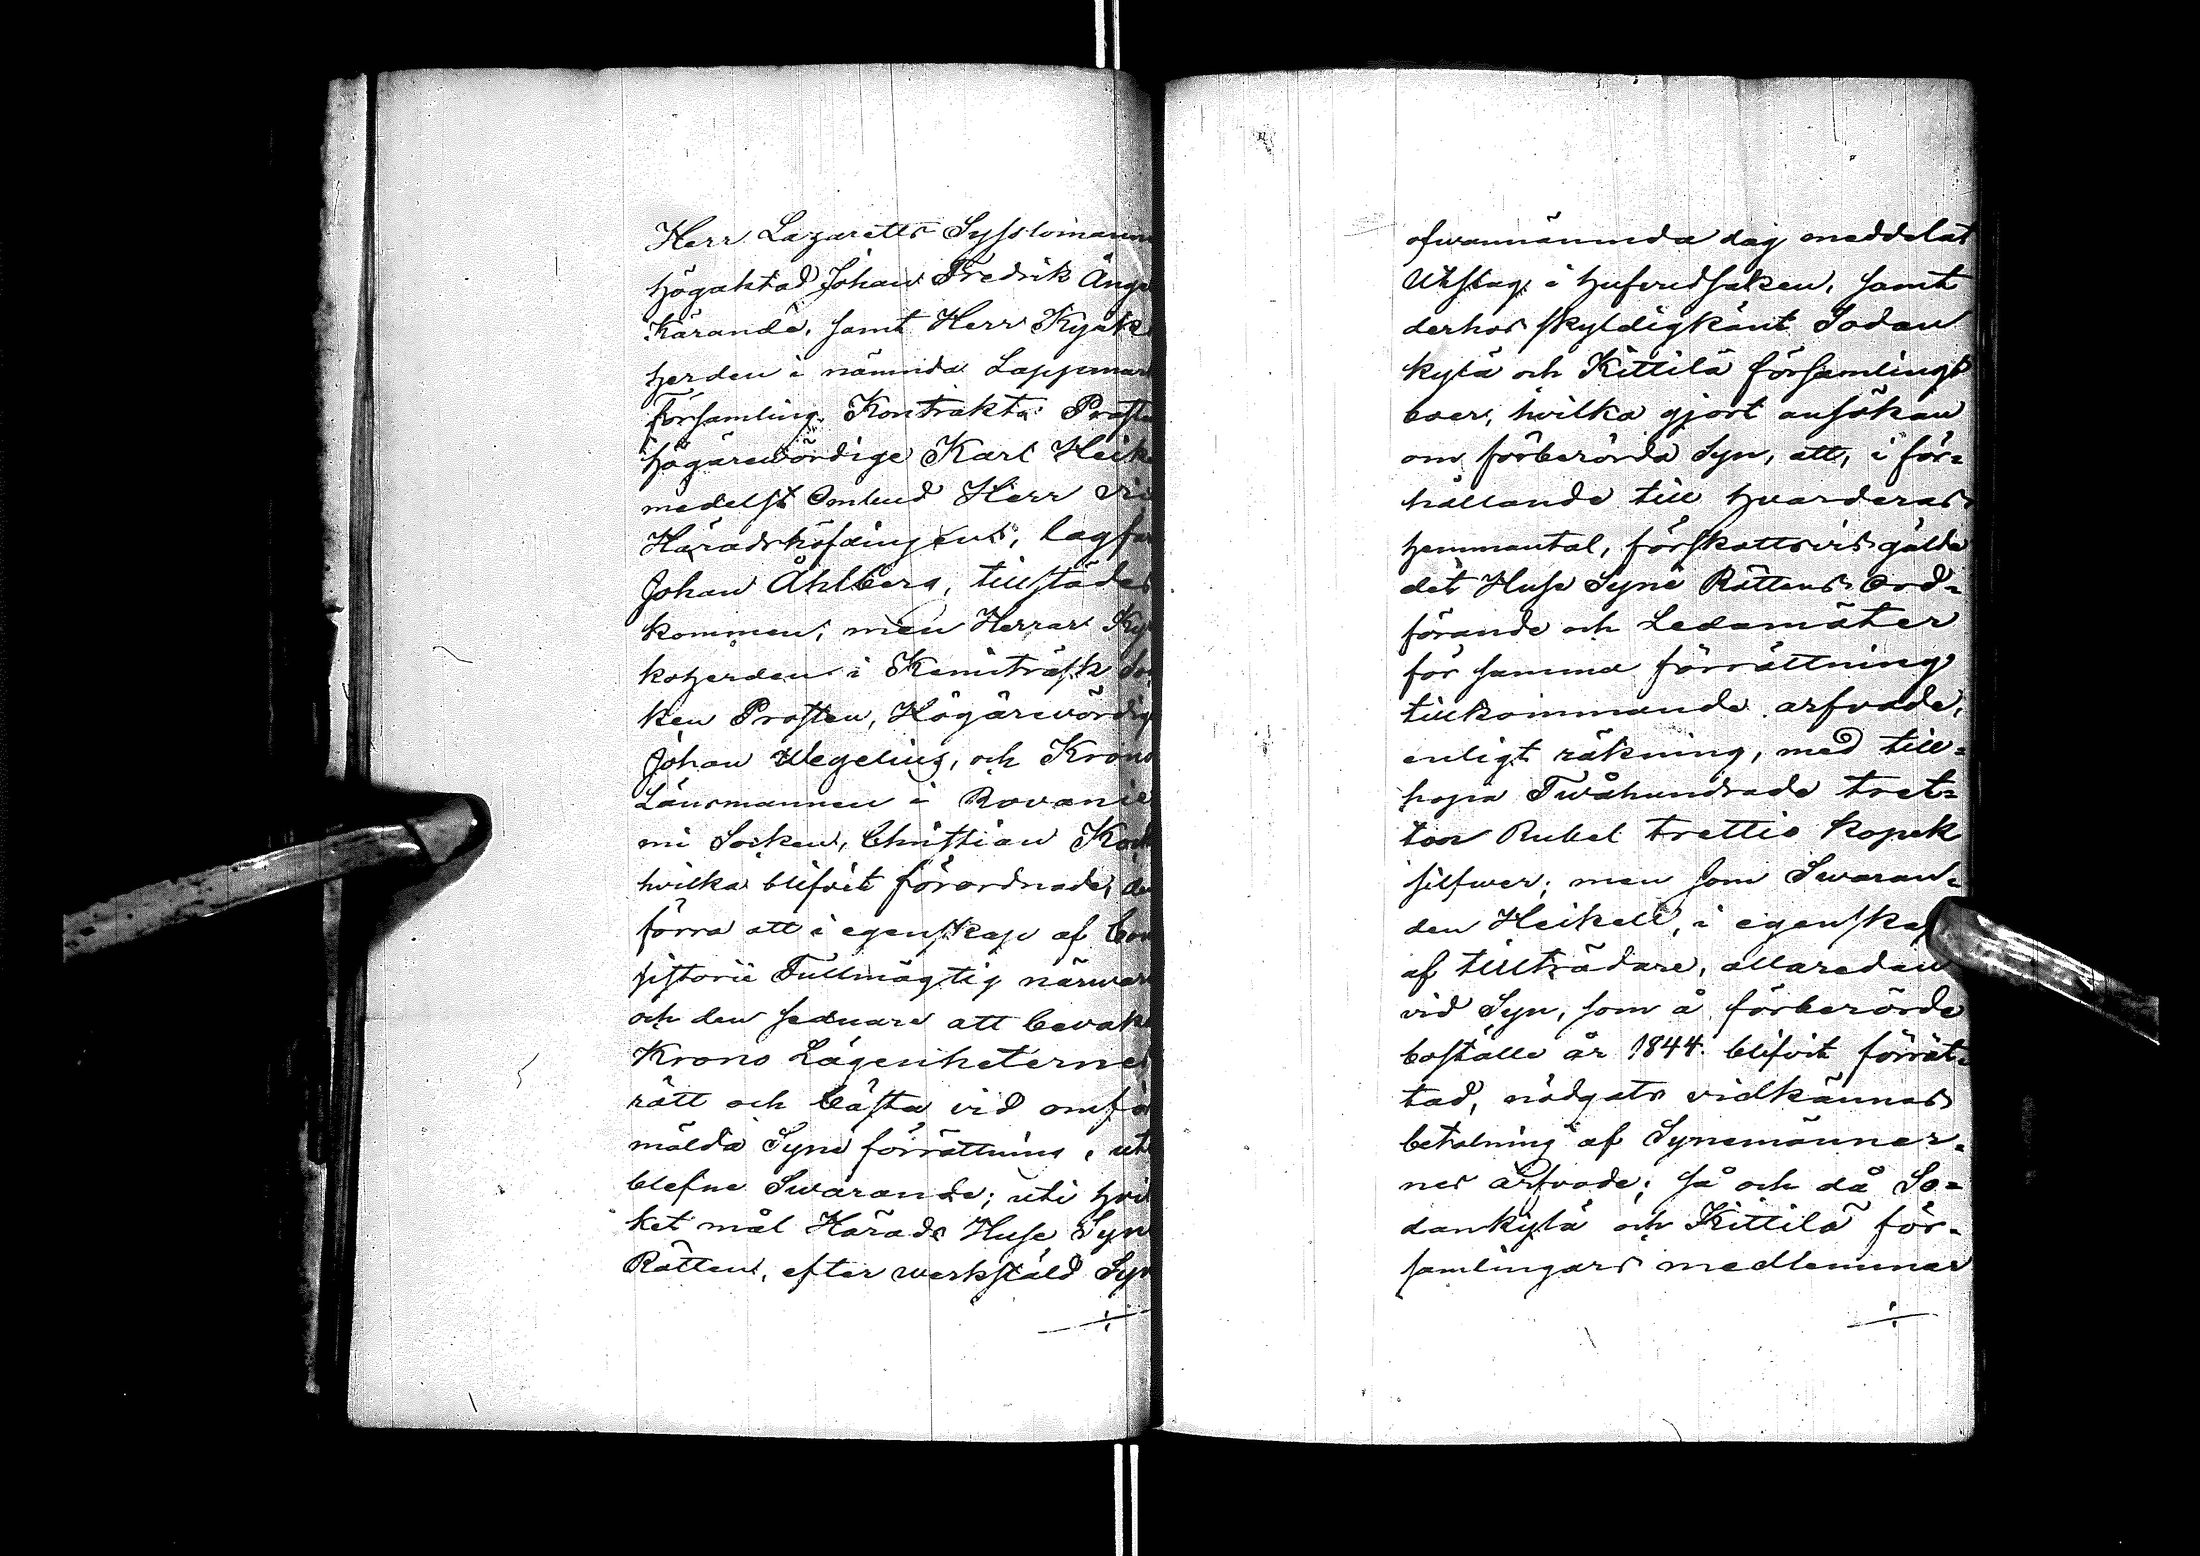 Herr Lazaretts Sysslomann
högaktad Johan Fredrik Ånge
Kärande, samt Herr Kyrk
herden i nämnda Lappmar
församling Kontrakts Proste
högärewördige Karl Heik
medelst Ombud Herr vi
Häradshöfdingens, lagfar
Johan Åhlberg, tillstädes
kommen; men Herrar Kyr
koherden i Kemiträsk So
ken Prosten, Högärewördig
Johan Wegelius, och Krono
Länsmannen i Rovanie
mi Socken, Christian
hvilka blifvit förordnade, de
förra att i egenskap af Con
sistorii Fullmägtig närwar
och den sednare att bevak
Krono Lägenheternes
rätt och bästa vid omför
mälda Syne förrättning, ut
blefne Swarande; uti hvil
ket mål Härads Huse Syn
Rätten, efter werkstäld Syn
÷
ofwannämnda dag meddelat
Utslag i hufvudsaken, samt
derhos skyldigkänt Sodan
kylä och Kittilä församlings
boer, hvilka gjort ansökan
om förberörda Syn, att, i för=
hållande till hvarderas
hemmantal, förskottsvis gälda
det Huse Syne Rättens Ord=
förande och Ledamöter
för samma förrättning
tillkommande arfvode,
enligt räkning, med till=
hopa Twåhundrade tret=
ton Rubel trettio kopek
silfwer; men som Swaran=
den Heikell, i egenskap
af tillträdare, allaredan
vid Syn, som å förberörde
boställe år 1844. blifvit förrät=
tad, nödgats vidkännas
betalning af Synemänner=
nes Arfvode; så och då So=
dankylä och Kittilä för=
samlingars medlemmar
÷